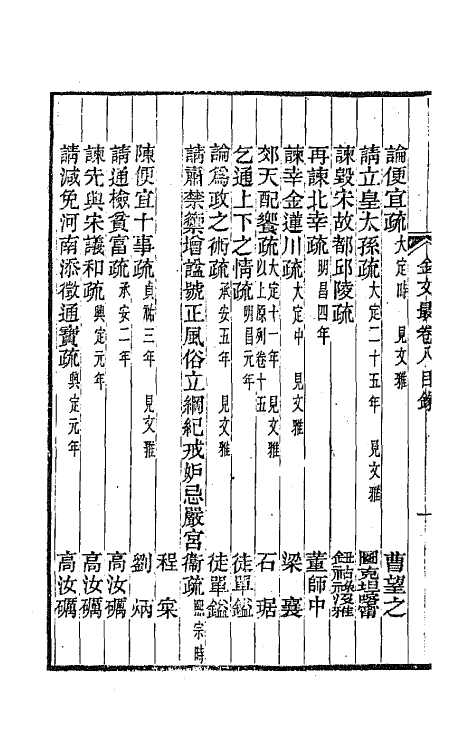 金文最卷八目錄 一
論便宜疏 大定時 見文雅 曹望之
請立皇太孫疏 大定二十五年 見文雅 圖克坦
諫毀宋故都邱陵疏 鈕祜祿
再諫北幸疏 明昌四年 董師中
諫幸金蓮川疏 大定中 見文雅 梁襄
郊天配饗疏 大定十一年 見文雅 以上原列卷十五 石琚
乞通上下之情疏 明昌元年 徒單鎰
論爲政之術疏 承安五年 見文雅 徒單鎰
請肅禁籞增諡號正風俗立綱紀戒妒忌嚴宮衞疏 熙宗時
程寀
陳便宜十事疏 貞祐三年 見文雅 劉炳
請通檢貧富疏 承安二年 高汝礪
諫先與宋議和疏 興定元年 高汝礪
請減免河南添徵通寶疏 興定元年 高汝礪